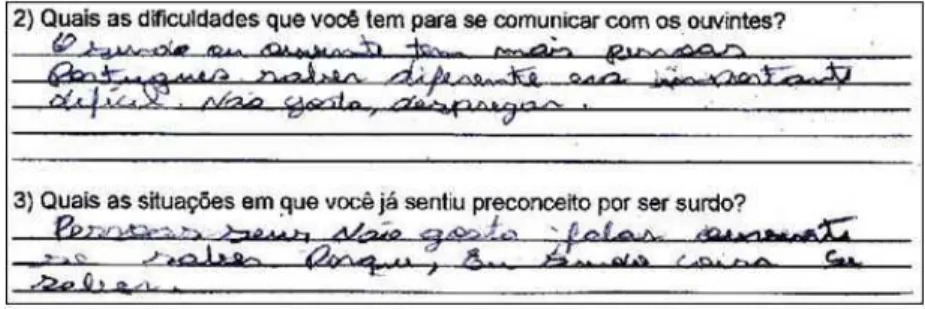 2) Quais as dificuldades que você tem para se comunicar com os ouvintes?
O surdo ou ouvinte tem mais pessoas
Portugues saber diferente era importante
difícil. Não gosto, despregar.
3) Quais as situações em que você já sentiu preconceito por ser surdo?
Pessoas seus Não gosto falar ouvinte
se saber Porque, Eu surdo coisa Eu
saber.